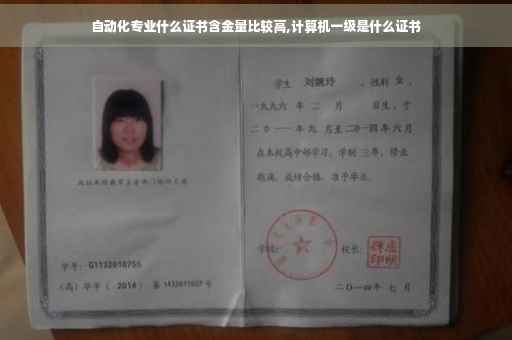 自动化专业什么证书含金量比较高,计算机一级是什么证书
学生 刘婉玲 ,性别 女 ,
一九九六 年 二 月 日生,于
二〇一一 年 九 月至 二〇一四 年 六 月
在本校高中部学习,学制 三 年,修业
期满,成绩合格,准予毕业。
学校:
校长:
二〇一四 年 七 月
学号: G1132010755
(高)毕字( 2014 )第 1432011027 号